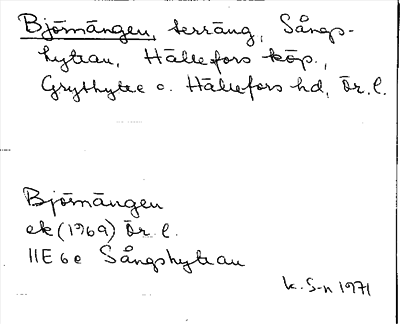 Björnängen, terräng, Sångs-
hyttan, Hällefors köp.,
Grythytte o. Hällefors hd, Ör. l.
Björnängen
ek (1969) Ör. l.
11E 6e Sångshyttan
k. S-n 1971